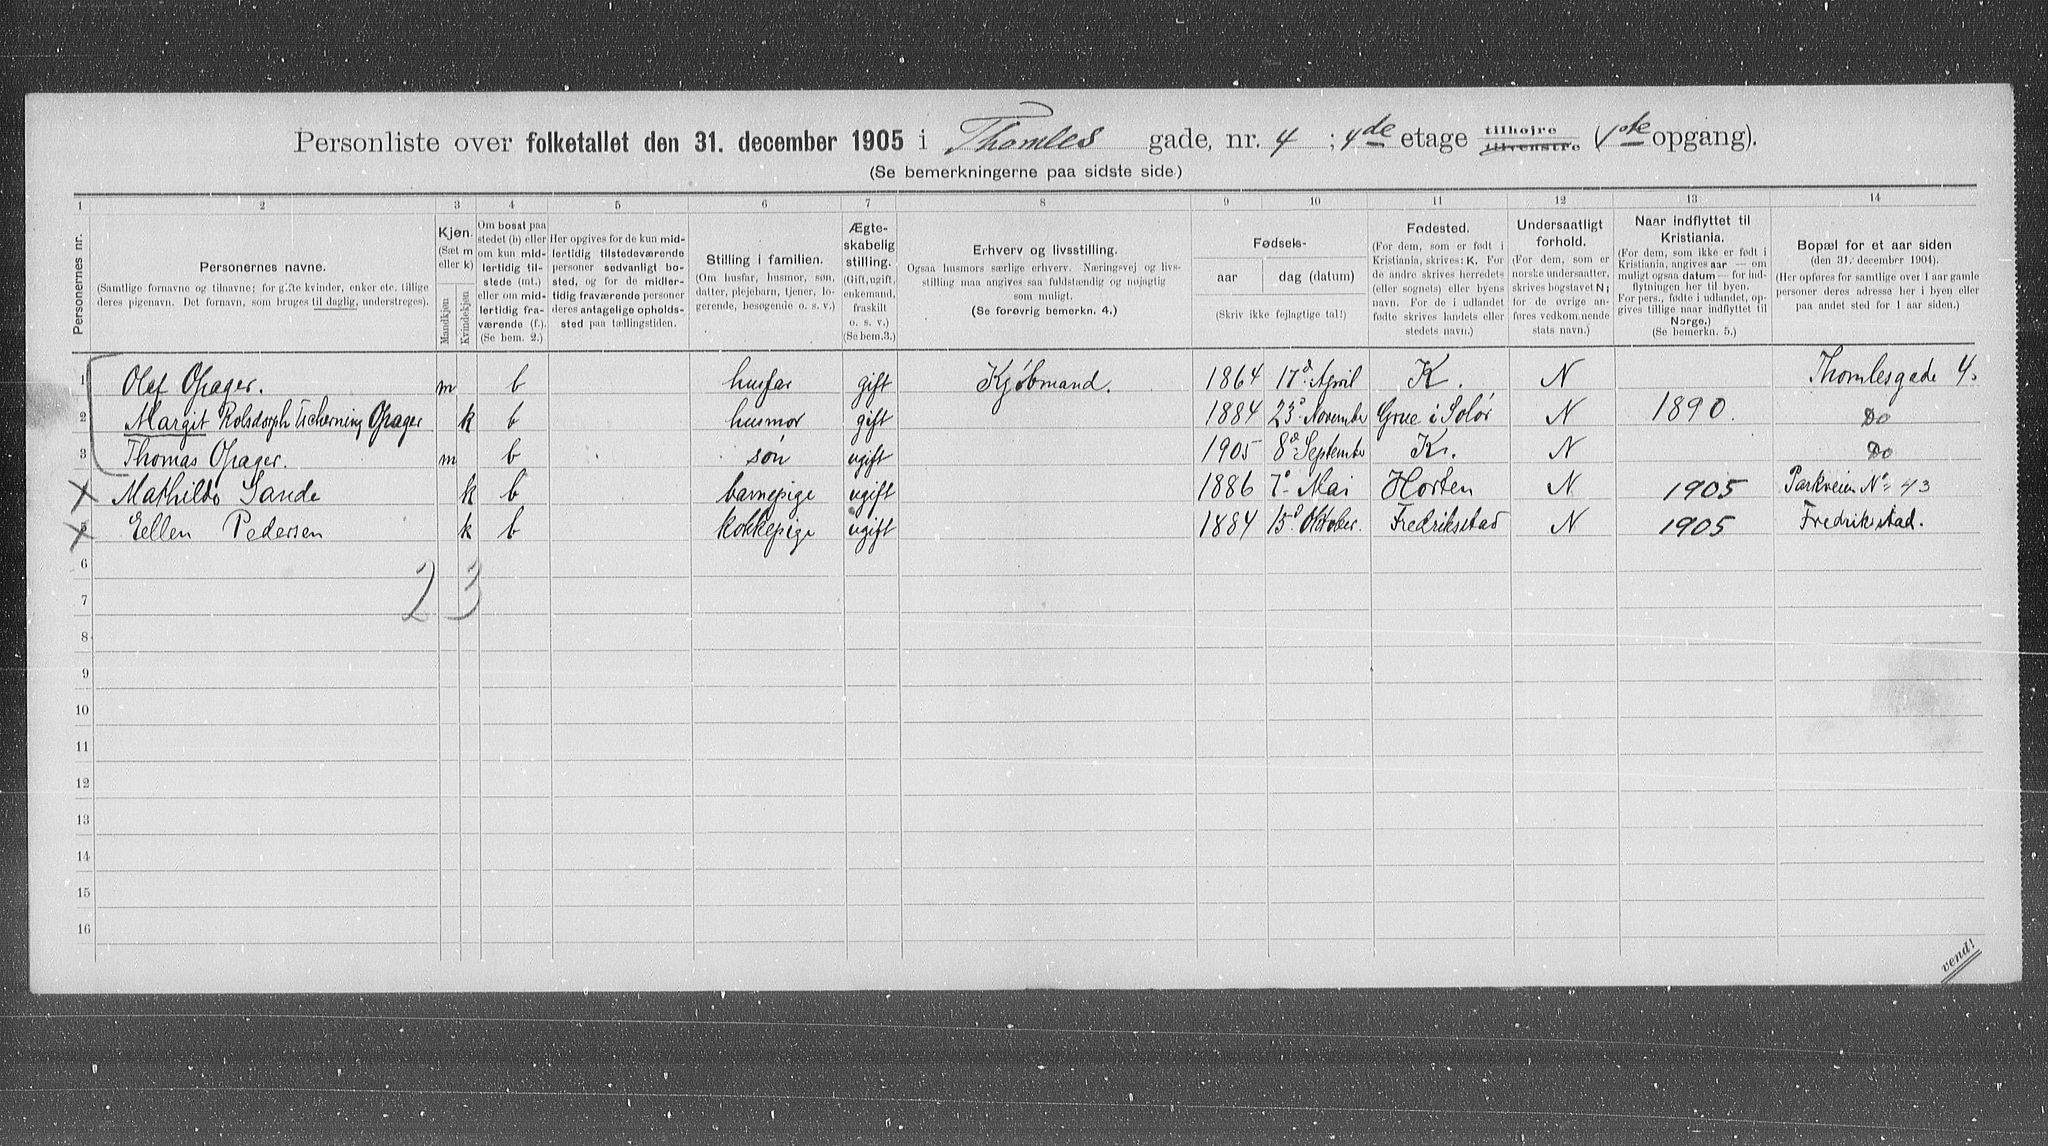 Personliste over folketallet den 31. december 1905 i Thomles gade, nr. 4 ; 4de etage tilhøire tilvenstre (Vste opgang).
(Se bemerkningerne paa sidste side.)
1 2 3 4 5 6 7 8 9 10 11 12 13 14
Personernes nr.
Personernes navne.
(Samtlige fornavne og tilnavne; for gifte kvinder, enker etc. tillige
deres pigenavn. Det fornavn, som bruges til daglig, understreges).
Kjøn.
(Sæt m
eller k)
Mandkjøn
Kvindekjøn
Om bosat paa
stedet (b) eller
om kun mid-
lertidig til-
stede (mt.)
eller om mid-
lertidig fra-
værende (f.).
(Se bem. 2.)
Her opgives for de kun mid-
lertidig tilstedeværende
personer sedvanligt bo-
sted, og for de midler-
tidig fraværende personer
deres antagelige opholds-
sted paa tællingstiden.
Stilling i familien.
(Om husfar, husmor, søn,
datter, plejebarn, tjener, lo-
gerende, besøgende o. s. v.)
Ægte-
skabelig
stilling.
(Gift, ugift,
enkemand,
fraskilt
o. s. v.)
(Se bem.3.)
Erhverv og livsstilling.
Ogsaa husmors særlige erhverv. Næringsvej og livs-
stilling maa angives saa fuldstændig og nøjagtig
som muligt.
(Se forøvrig bemerkn. 4.)
Fødsels-
aar dag (datum)
(Skriv ikke fejlagtige tal!)
Fødested.
(For dem, som er født i
Kristiania, skrives: K. For
de andre skrives herredets
(eller sognets) eller byens
navn. For de i udlandet
fødte skrives landets eller
stedets navn.)
Undersaatligt
forhold.
(For dem, som er
norske undersaatter,
skrives bogstavet N;
for de øvrige an-
føres vedkommende
stats navn.)
Naar indflyttet til
Kristiania.
(For dem, som ikke er født i
Kristiania, angives aar — om
muligt ogsaa datum — for ind-
flytningen her til byen.
For pers., fødte i udlandet, op-
gives tillige naar indflyttet til
Norge.)
(Se bemerkn. 5.)
Bopæl for et aar siden
(den 31. december 1904).
(Her opføres for samtlige over 1 aar gamle
personer deres adresse her i byen eller
paa andet sted for 1 aar siden.)
1 Olaf Opsager. m b husfar gift Kjøbmand. 1864 17d April K. N Thomlesgade 4.
2 Margit Rolsdorph Tscherning Opsager k b husmor gift 1884 23d November Grue i Solør N 1890. Do
3 Thomas Opsager. m b søn ugift 1905 8d September K. N Do
Mathilde Sande k b barnepige ugift 1886 7d Mai Horten N 1905 Parkveien No 43
5 Eellen Pedersen k b kokkepige ugift 1884 15d Oktober. Fredriksstad N 1905 Fredriksstad.
6
2 3
7
8
9
10
11
12
13
14
15
16
vend!